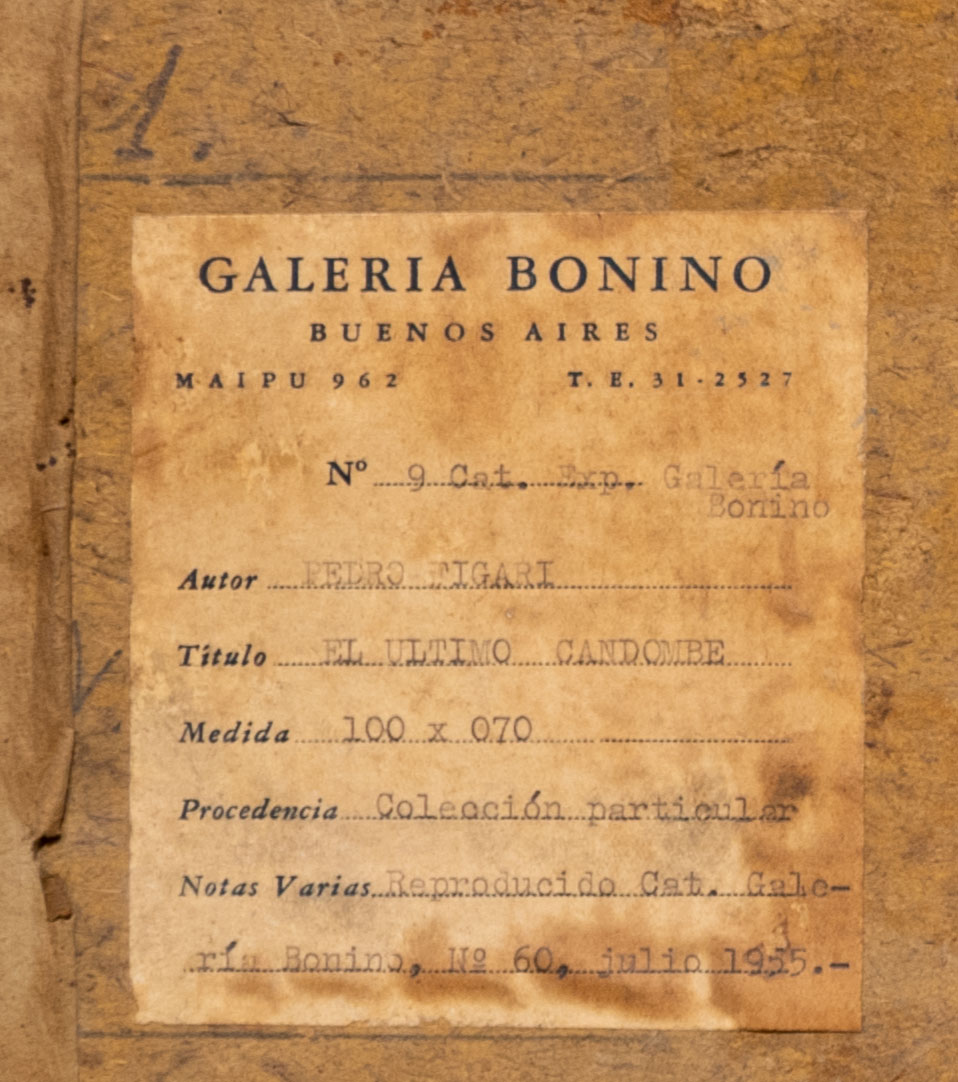 1.
GALERIA BONINO
BUENOS AIRES
MAIPU 962 T. E. 31-2527
Nº 9 Cat. Exp. Galería
Bonino
Autor PEDRO FIGARI
Título EL ULTIMO CANDOMBE
Medida 100 x 070
Procedencia Colección particular
Notas Varias Reproducido Cat. Gale-
ría Bonino, Nº 60, julio 1955.-